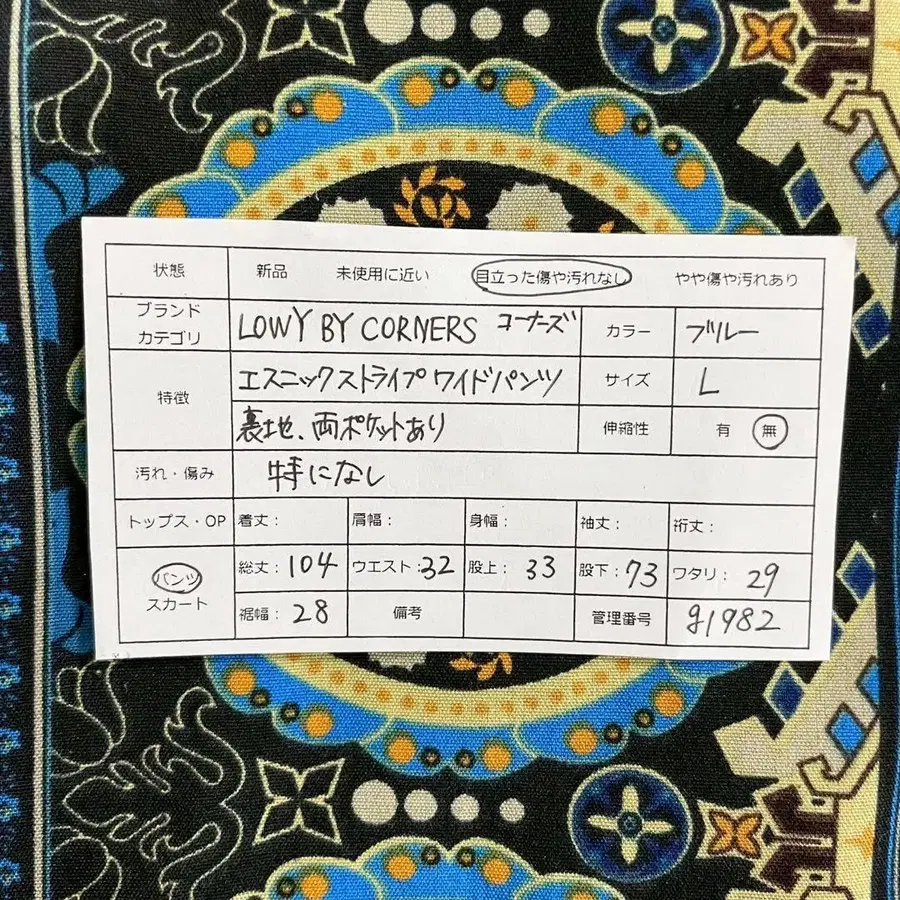 状態 新品 未使用に近い 目立った傷や汚れなし やや傷や汚れあり
ブランド
カテゴリ
LOWY BY CORNERS コーナーズ カラー ブルー
特徴 エスニックストライプワイドパンツ サイズ L
裏地、両ポケットあり 伸縮性 有 無
汚れ・傷み 特になし
トップス・OP 着丈: 肩幅: 身幅: 袖丈: 裄丈:
パンツ
スカート
総丈:104 ウエスト:32 股上:33 股下:73 ワタリ:29
裾幅:28 備考 管理番号 g1982